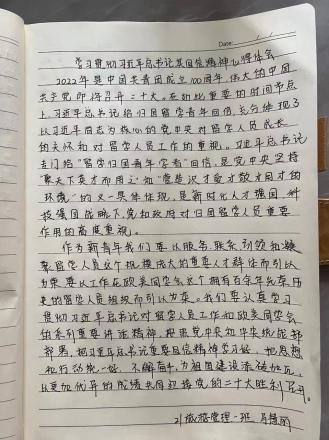 Date:
学习贯彻习近平总书记某回信精神心得体会
2022年是中国共青团成立100周年,伟大的中国
共产党即将召开二十大。在如此重要的时间节点
上,习近平总书记给归国留学青年回信,充分体现了
以习近平同志为核心的党中央对留学人员成长
的关怀和对留学人员工作的重视。习近平总书记
专门给“留学归国青年学者”回信,是党中央坚持
“聚天下英才而用之”和“营造识才爱才敬才用才的
环境”的又一具体体现,是新时代人才强国、科
技强国战略下,党和政府对归国留学人员重要
作用的高度重视。
作为新青年我们要以服务、联系、引领和凝
聚留学人员这个规模庞大的重要人才群体而引以
为荣,要以工作在欧美同学会这个拥有百余年光荣历
史的留学人员组织而引以为荣。我们要认真学习
贯彻习近平总书记对留学人员工作和欧美同学会
的系列重要讲话精神,按照党中央和中央统战部
部署,把习近平总书记重要回信精神学习好,把思想
和行动统一好,不懈奋斗,为祖国建设添砖加瓦,
以更加优异的成绩共同迎接党的二十大胜利召开。
旅游管理一班